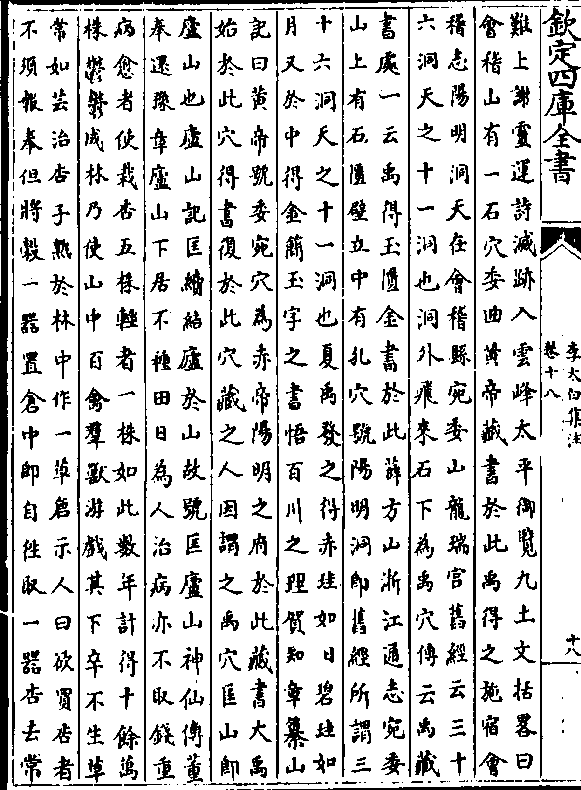 欽定四庫全書
難上謝靈運詩滅跡入雲峰太平御覽九土文括畧曰
會稽山有一石穴委曲黃帝藏書於此禹得之施宿會
稽志陽明洞天在會稽縣宛委山龍瑞宮舊經云三十
六洞天之十一洞也洞外飛來石下為禹穴傳云禹藏
書處一云禹得玉匱金書於此薛方山浙江通志宛委
山上有石匱壁立中有孔穴號陽明洞即舊經所謂三
十六洞天之十一洞也夏禹發之得赤珪如日碧珪如
月又於中得金簡玉字之書悟百川之理賀知章纂山
記曰黃帝號委宛穴為赤帝陽明之府於此藏書大禹
始於此穴得書復於此穴藏之人因謂之禹穴匡山即
廬山也廬山記匡續結廬於山故號匡廬山神仙傳董
奉還豫章廬山下居不種田日為人治病亦不取錢重
病愈者使栽杏五株輕者一株如此數年計得十餘萬
株鬱鬱成林乃使山中百禽羣獸游戲其下卒不生草
常如芸治杏子熟於林中作一草倉示人曰欲買杏者
不須報奉但將穀一器置倉中即自往取一器杏去常
李太白集注
卷十八
十八